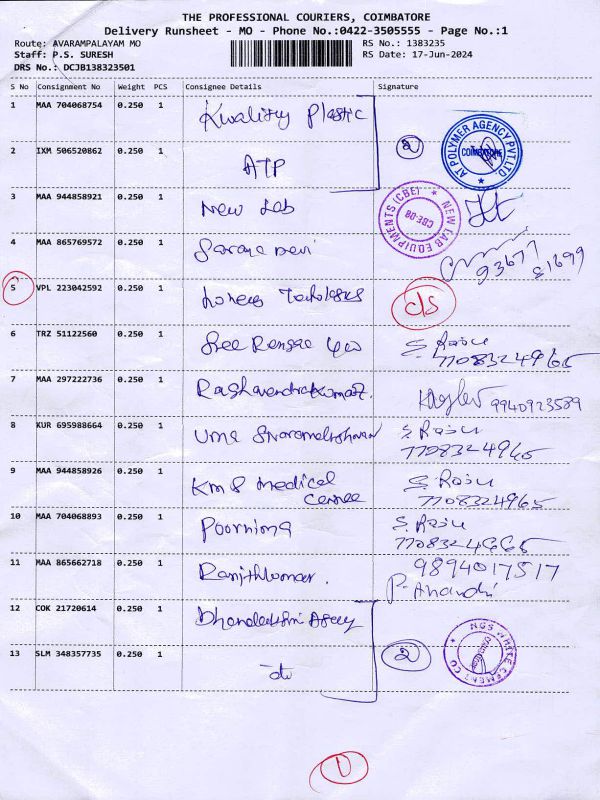 THE PROFESSIONAL COURIERS, COIMBATORE
Delivery Runsheet - MO - Phone No.:0422-3505555 - Page No.:1
Route: AVARAMPALAYAM MO
RS No.: 1383235
Staff: P.S. SURESH
RS Date: 17-Jun-2024
DRS No.: DCJB138323501
S No Consignment No Weight PCS Consignee Details Signature
1 MAA 704068754 0.250 1 Kwality Plastic
2 IXM 506520862 0.250 1 ATP
2
AT POLYMER AGENCY PVT LTD
COIMBATORE
3 MAA 944858921 0.250 1 New Lab
NEW LAB EQUIPMENTS (CBE)
CBE-08
4 MAA 865769572 0.250 1 93677 81699
5 VPL 223042592 0.250 1 c/s
6 TRZ 51122560 0.250 1 Sree Rengaa S. Raju
7708324965
7 MAA 297222736 0.250 1 Raghavendrakumar. 9940923589
8 KUR 695988664 0.250 1 Uma S. Raju
7708324965
9 MAA 944858926 0.250 1 KMS medical S. Raju
7708324965
10 MAA 704068893 0.250 1 Poornima S. Raju
11 MAA 865662718 0.250 1 Ranjithkumar. 9894017517
P. Anandhi
12 COK 21720614 0.250 1 Dhanalakshmi Agency
13 SLM 348357735 0.250 1 do
2
NGS WHITE CEMENT CO
1